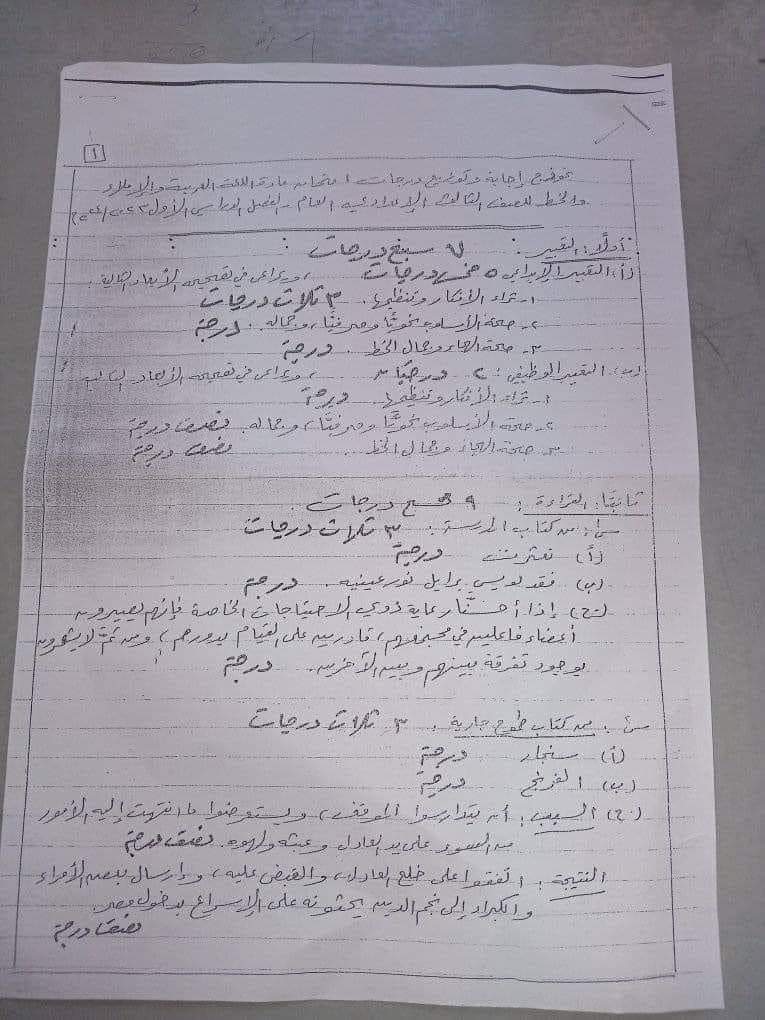 ١
نموذج إجابة وتوزيع درجات امتحان مادة اللغة العربية والإملاء
والخط للصف الثالث الإعدادي العام - الفصل الدراسي الأول
أولًا: التعبير : ٧ سبع درجات
(أ) التعبير الإبداعي ٥ خمس درجات ، ويراعى في تصحيحه الأبعاد التالية:
١- ثراء الأفكار وتنظيمها. ٣ ثلاث درجات
٢- صحة الأسلوب نحويًّا وصرفيًّا، وجماله. درجة
٣- صحة الهجاء وجمال الخط. درجة
(ب) التعبير الوظيفي: ٢ درجتان ، ويراعى في تصحيحه الأبعاد التالية
١- ثراء الأفكار وتنظيمها. درجة
٢- صحة الأسلوب نحويًّا وصرفيًّا، وجماله. نصف درجة
٣- صحة الهجاء وجمال الخط. نصف درجة
ثانيًا: القراءة : ٩ تسع درجات
من كتاب المدرسة: ٣ ثلاث درجات
(أ) درجة
(ب) فقد لويس برايل نور عينيه. درجة
(جـ) إذا أحسنَّا رعاية ذوي الاحتياجات الخاصة فإنهم يصيرون
أعضاء فاعلين في مجتمعهم، قادرين على القيام بدورهم، ومن ثمَّ لا يشعرون
بوجود تفرقة بينهم وبين الآخرين. درجة
من كتاب طموح جارية: ٣ ثلاث درجات
(أ) سنجار درجة
(ب) الفرنج درجة
(جـ) السبب: أن يتدارسوا الموقف، ويستعرضوا ما انتهت إليه الأمور
من السوء على يد العادل وعبثه ولهوه. نصف درجة
النتيجة: اتفقوا على خلع العادل، والقبض عليه، وإرسال بعض الأمراء
والكبراء إلى نجم الدين يحثونه على الإسراع بدخول مصر.
نصف درجة